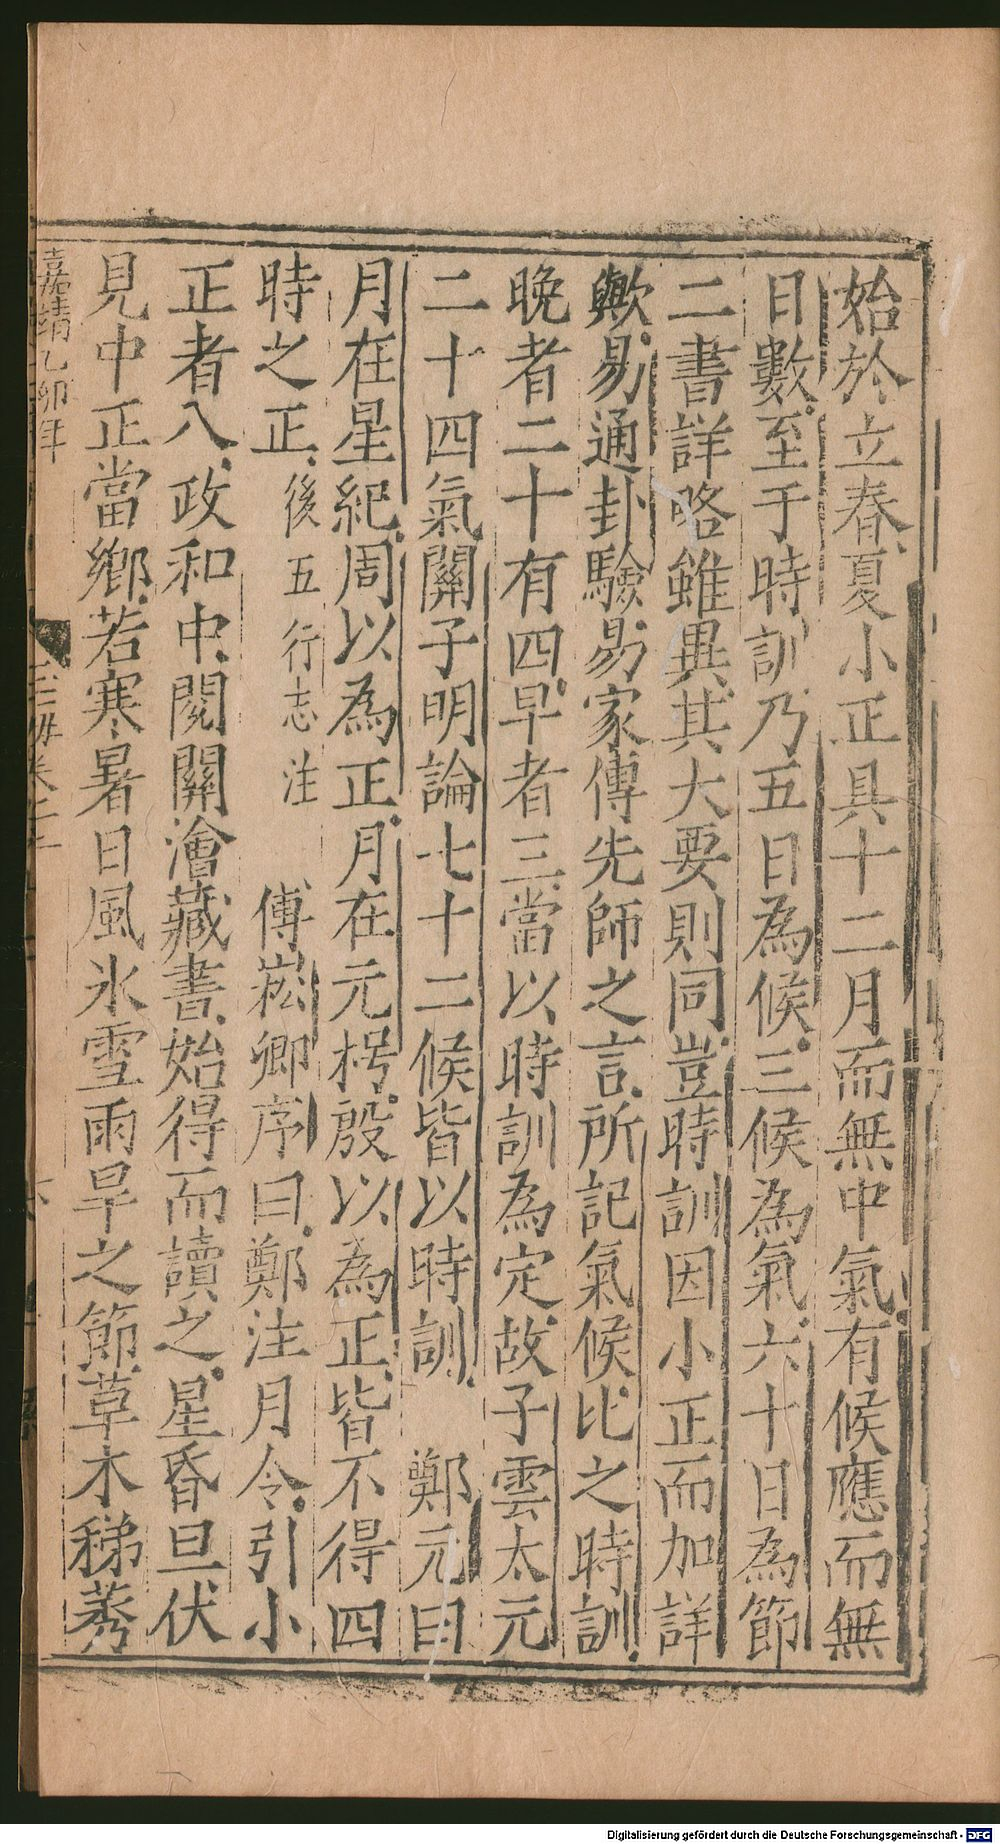 始於立春夏小正具十二月而無中氣有候應而無
日數至于時訓乃五日為候三候為氣六十日為節
二書詳略雖異其大要則同豈時訓因小正而加詳
歟易通卦驗易家傳先師之言所記氣候比之時訓
晚者二十有四早者三當以時訓為定故子雲太元
二十四氣關子明論七十二候皆以時訓 鄭元曰
月在星紀周以為正月在元枵殷以為正皆不得四
時之正後五行志注 傅崧卿序曰鄭注月令引小
正者八政和中閱關澮藏書始得而讀之星昏旦伏
見中正當鄉若寒暑日風氷雪雨旱之節草木稊莠
嘉靖乙卯年
Digitalisierung gefördert durch die Deutsche Forschungsgemeinschaft - DFG